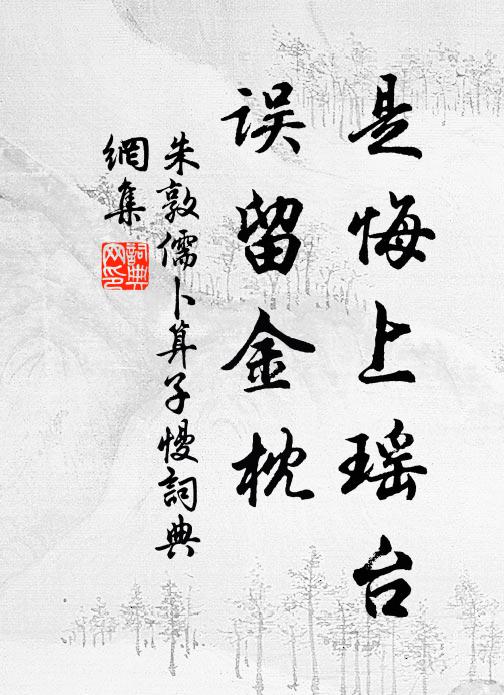 是悔上瑶台
误留金枕
朱敦儒卜算子慢詞典
網集
詞典
网印